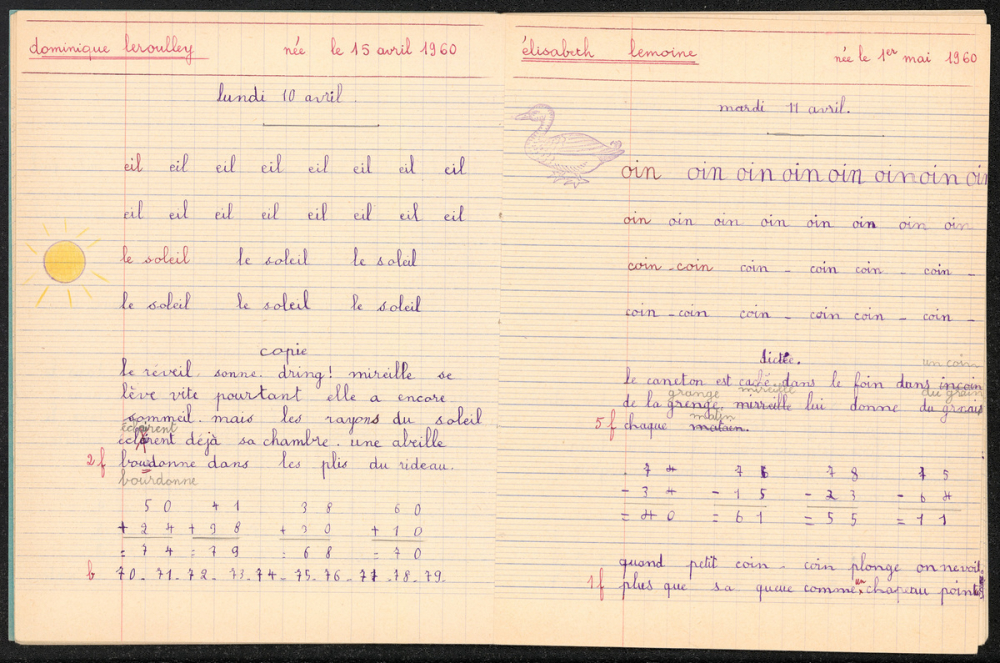 dominique leroulley née le 15 avril 1960
lundi 10 avril.
eil eil eil eil eil eil eil eil
eil eil eil eil eil eil eil eil
le soleil le soleil le soleil
le soleil le soleil le soleil
copie
le réveil sonne. dring! mireille se
lève vite pourtant elle a encore
sommeil. mais les rayons du soleil
éclairent
déjà sa chambre. une abeille
2 f boudonne dans les plis du rideau.
bourdonne
50 41 38 60
+ 24 + 38 + 30 + 10
= 74 = 79 = 68 = 70
b 70_71_72_73_74_75_76_77_78_79_
élisabeth lemoine née le 1er mai 1960
mardi 11 avril.
oin oin oin oin oin oin oin oin
oin oin oin oin oin oin oin oin
coin_coin coin _ coin coin _ coin _
coin_coin coin _ coin coin _ coin _
dictée.
un coin
le caneton est caché dans le foin dans incoin
grange mireille du grain
de la grenge. mirreille lui donne du grais
matin
5 f chaque matain.
74 76 78 75
- 34 - 15 - 23 - 64
= 40 = 61 = 55 = 11
quand petit coin _ coin plonge on ne voit
1 f plus que sa queue comme en chapeau pointu